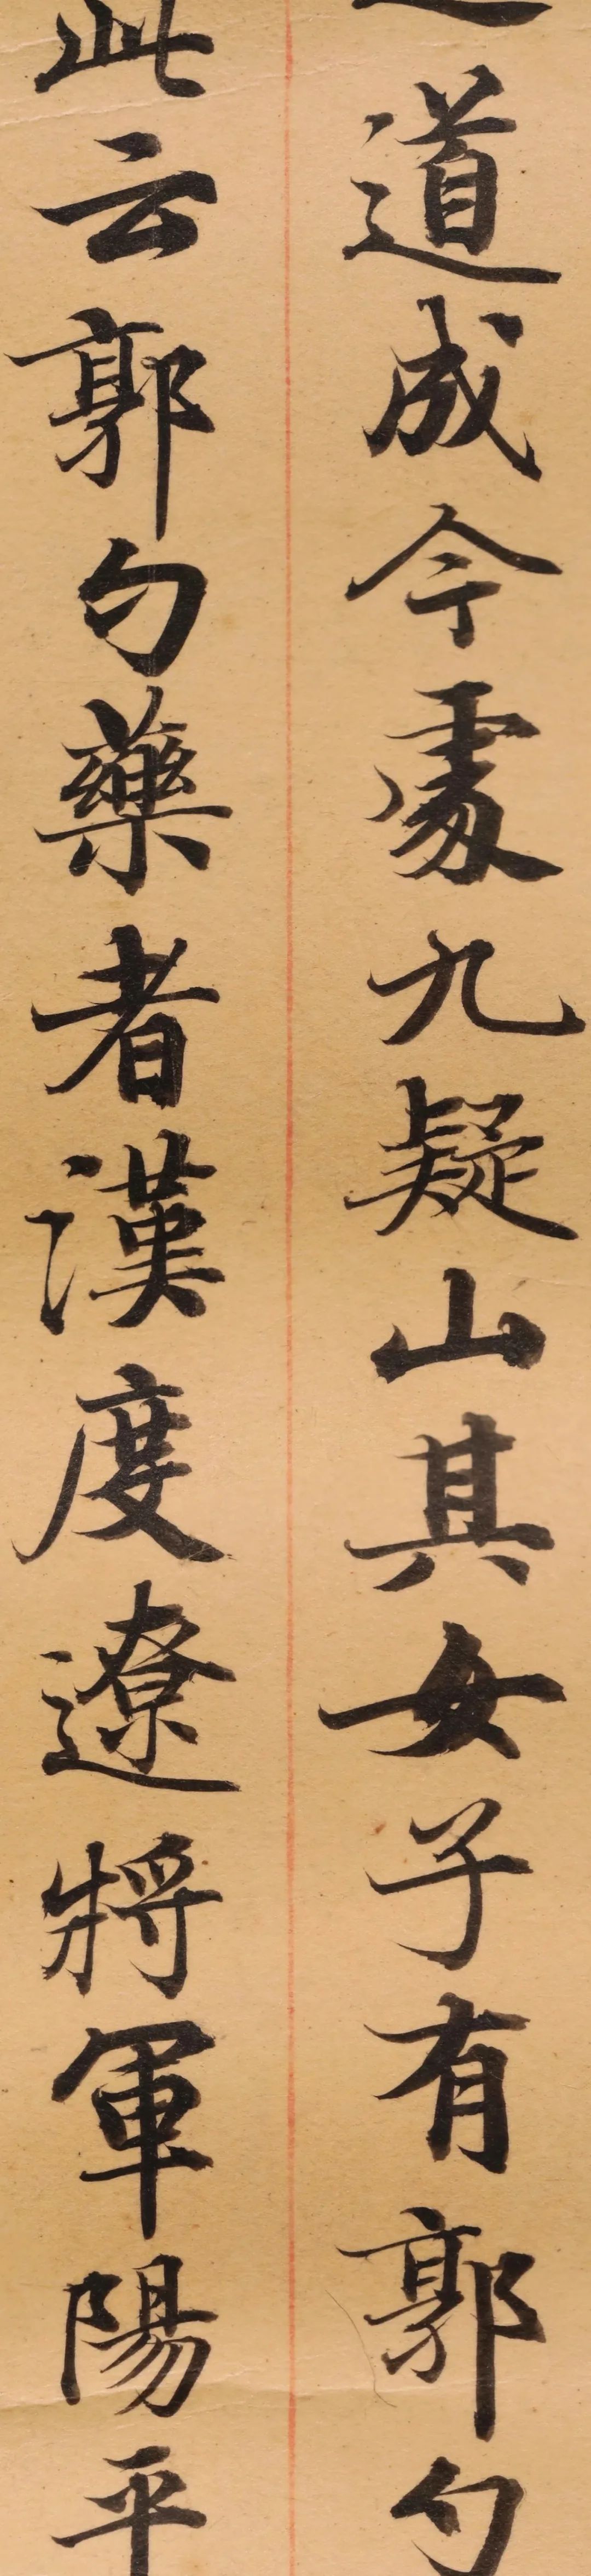 道成今處九疑山其女子有郭勺
此云郭勺藥者漢度遼將軍陽平